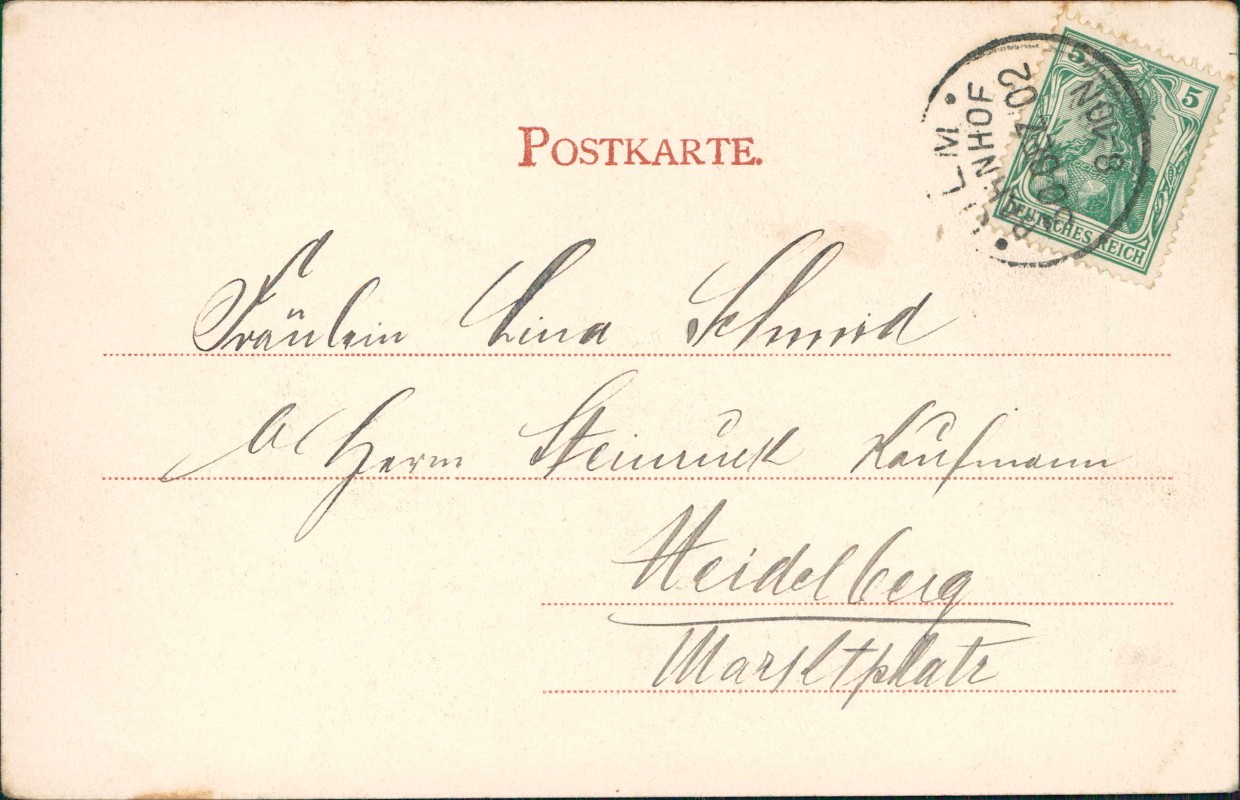 POSTKARTE.
5 5
DEUTSCHES REICH
ULM
BAHNHOF
02
8-10N
Fräulein Lina Schmid
a/ Herrn Steinruck Kaufmann
Heidelberg
Marktplatz